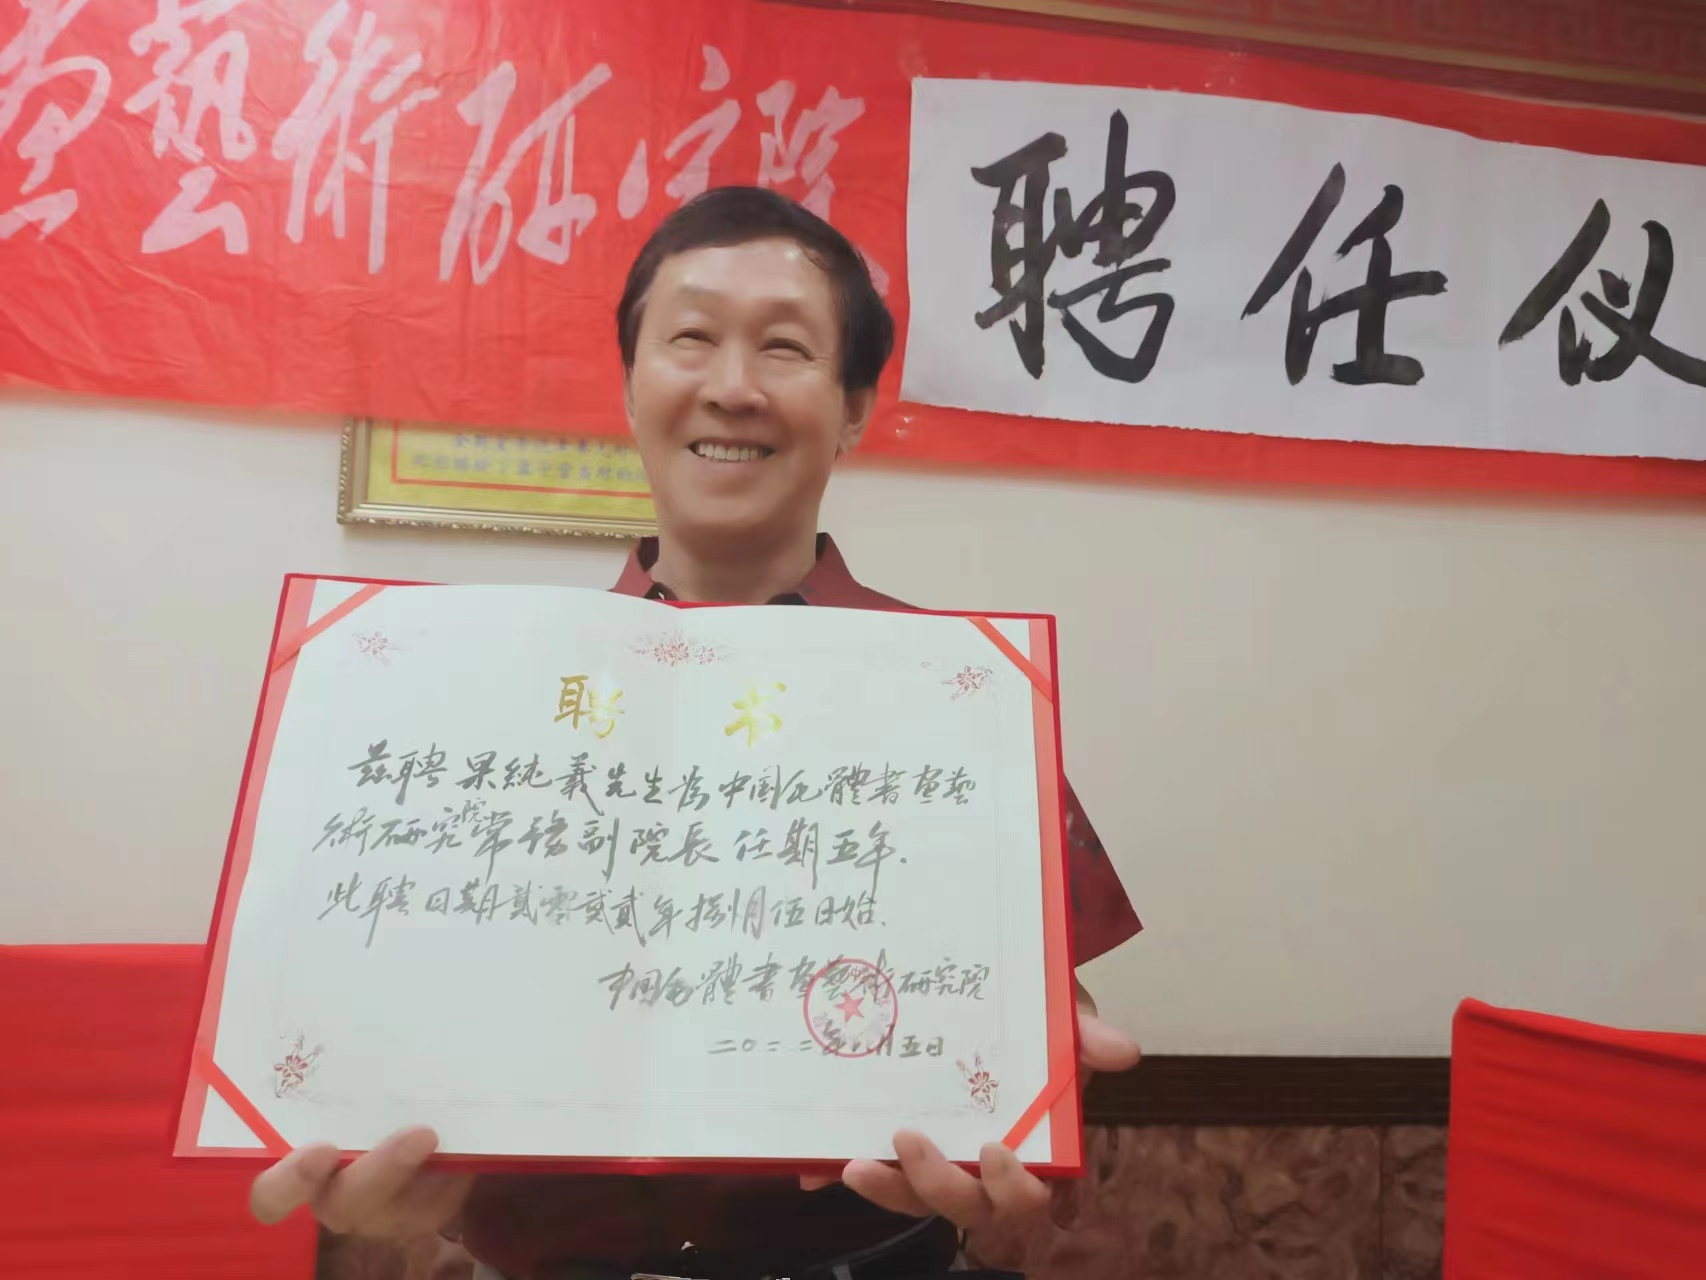 畫藝術研究院
聘任仪
聘书
兹聘果純義先生为中国毛體書畫藝
術研究院常務副院長任期五年.
此聘日期貳零貳貳年捌月伍日始.
中国毛體書畫藝術研究院
二〇二二年八月五日